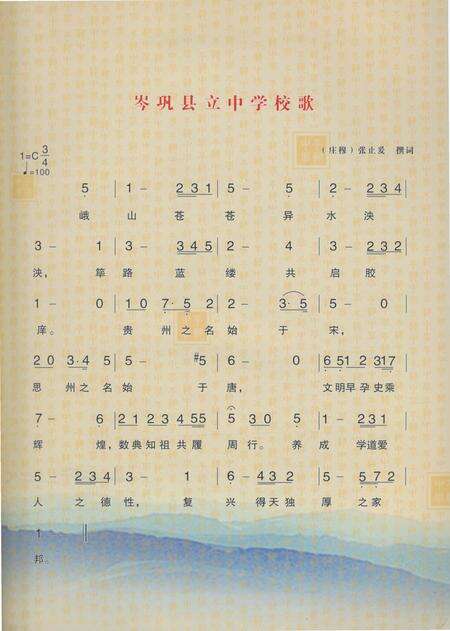 岑巩县立中学校歌
(庄穆) 张止爰 撰词
1=C 3/4
♩=100
5 | 1 - 2 3 1 | 5 - 5 | 2 - 2 3 4 |
峨 山 苍 苍 异 水 泱
3 - 1 | 3 - 3 4 5 | 2 - 4 | 3 - 2 3 2 |
泱, 筚 路 蓝 缕 共 启 胶
1 - 0 | 1 0 7· 5 2 | 2 - 3· 5 | 5 - - |
庠。 贵 州 之 名 始 于 宋,
2 0 3· 4 5 | 5 - #5 | 6 - 0 | 6 5 1 2 3 1 7 |
思 州 之 名 始 于 唐, 文 明 早 孕 史 乘
7 - 6 | 2 1 2 3 4 5 5 | 5 3 0 5 | 1 - 2 3 1 |
辉 煌, 数 典 知 祖 共 履 周 行。 养 成 学 道 爱
5 - 2 3 4 | 3 - 1 | 6 - 4 3 2 | 5 - 5 7 2 |
人 之 德 性, 复 兴 得 天 独 厚 之 家
1 ||
邦。